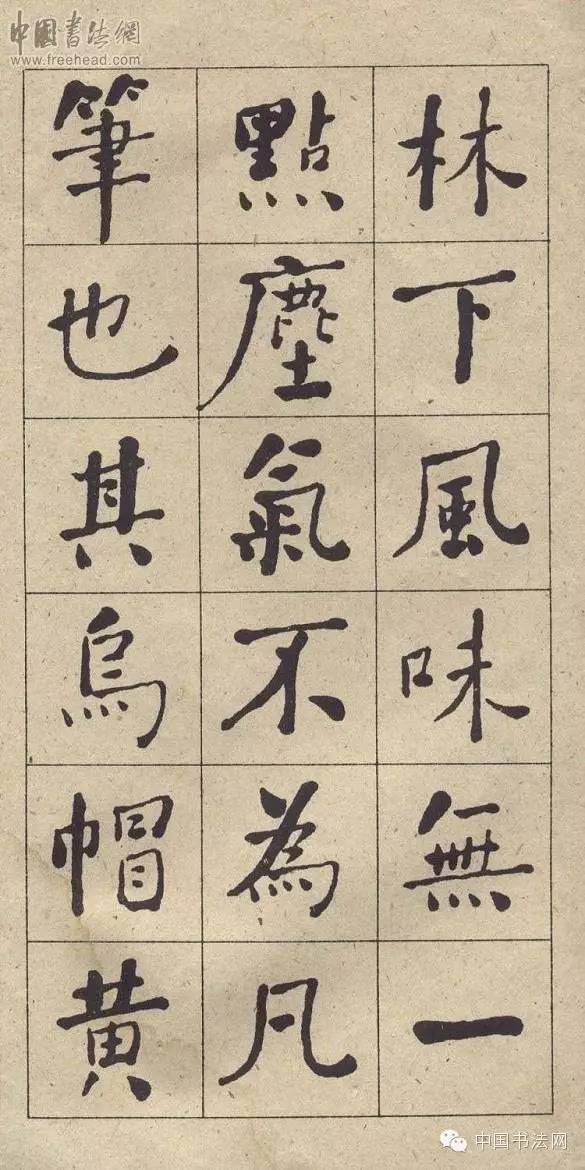 中国书法網
www.freehead.com
林下風味無一
點塵氣不為凡
筆也其烏帽黄
中国书法网